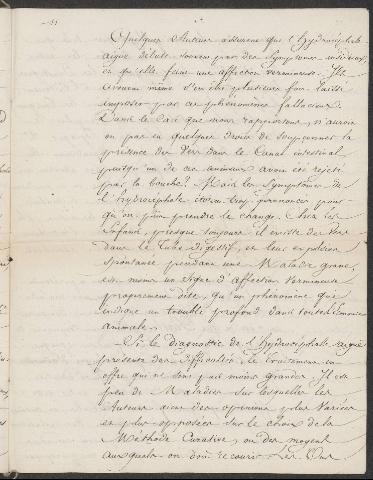 Quelques Auteurs assurent que l'hydrocéphale
aigue débute souvent par des Symptomes insidieux
et qu'elle feint une affection vermineuse. Ils
avouent même s'en être plusieurs fois laissé
imposer par ce phénomène fallacieux.
Dans le Cas que nous rapportons, n'aurois
on pas eu quelque droit de soupçonner la
présence des Vers dans le Canal intestinal
puisqu'un de ces animaux avoit été rejeté
par la bouche? Mais les Symptomes de
l'hydrocéphale étoient trop prononcés pour
qu'on pût prendre le change. Chez les
Enfants, presque toujours il existe des Vers
dans le Tube digestif, et leur expulsion
spontanée pendant une Maladie grave,
est moins un signe d'affection vermineuse
proprement dite, qu'un phénomène qui
indique un trouble profond dans toute l'Economie
animale.
Si le diagnostic de l'hydrocéphale aiguë
présente des difficultés, le traitement en
offre qui ne sont pas moins grandes. Il est
peu de Maladies sur lesquelles les
Auteurs aient des opinions plus Variées
et plus opposées sur le choix de la
Méthode Curative, ou des moyens
auxquels on doit recourir. Les Uns